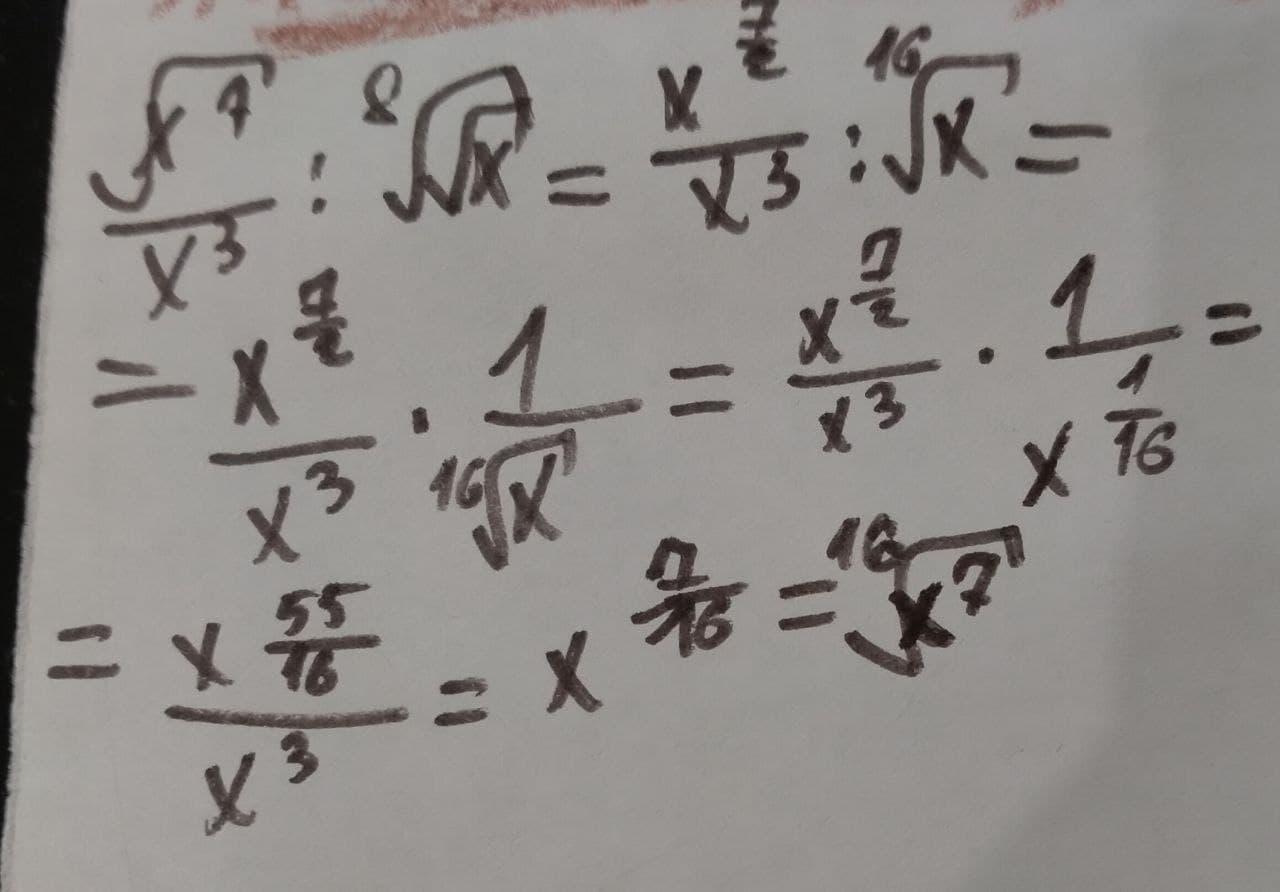 √(x^7)/x^3 : ⁸√(√x) = x^(7/2)/x^3 : ¹⁶√x =
= x^(7/2)/x^3 · 1/¹⁶√x = x^(7/2)/x^3 · 1/x^(1/16) =
= x^(55/16)/x^3 = x^(7/16) = ¹⁶√(x^7)